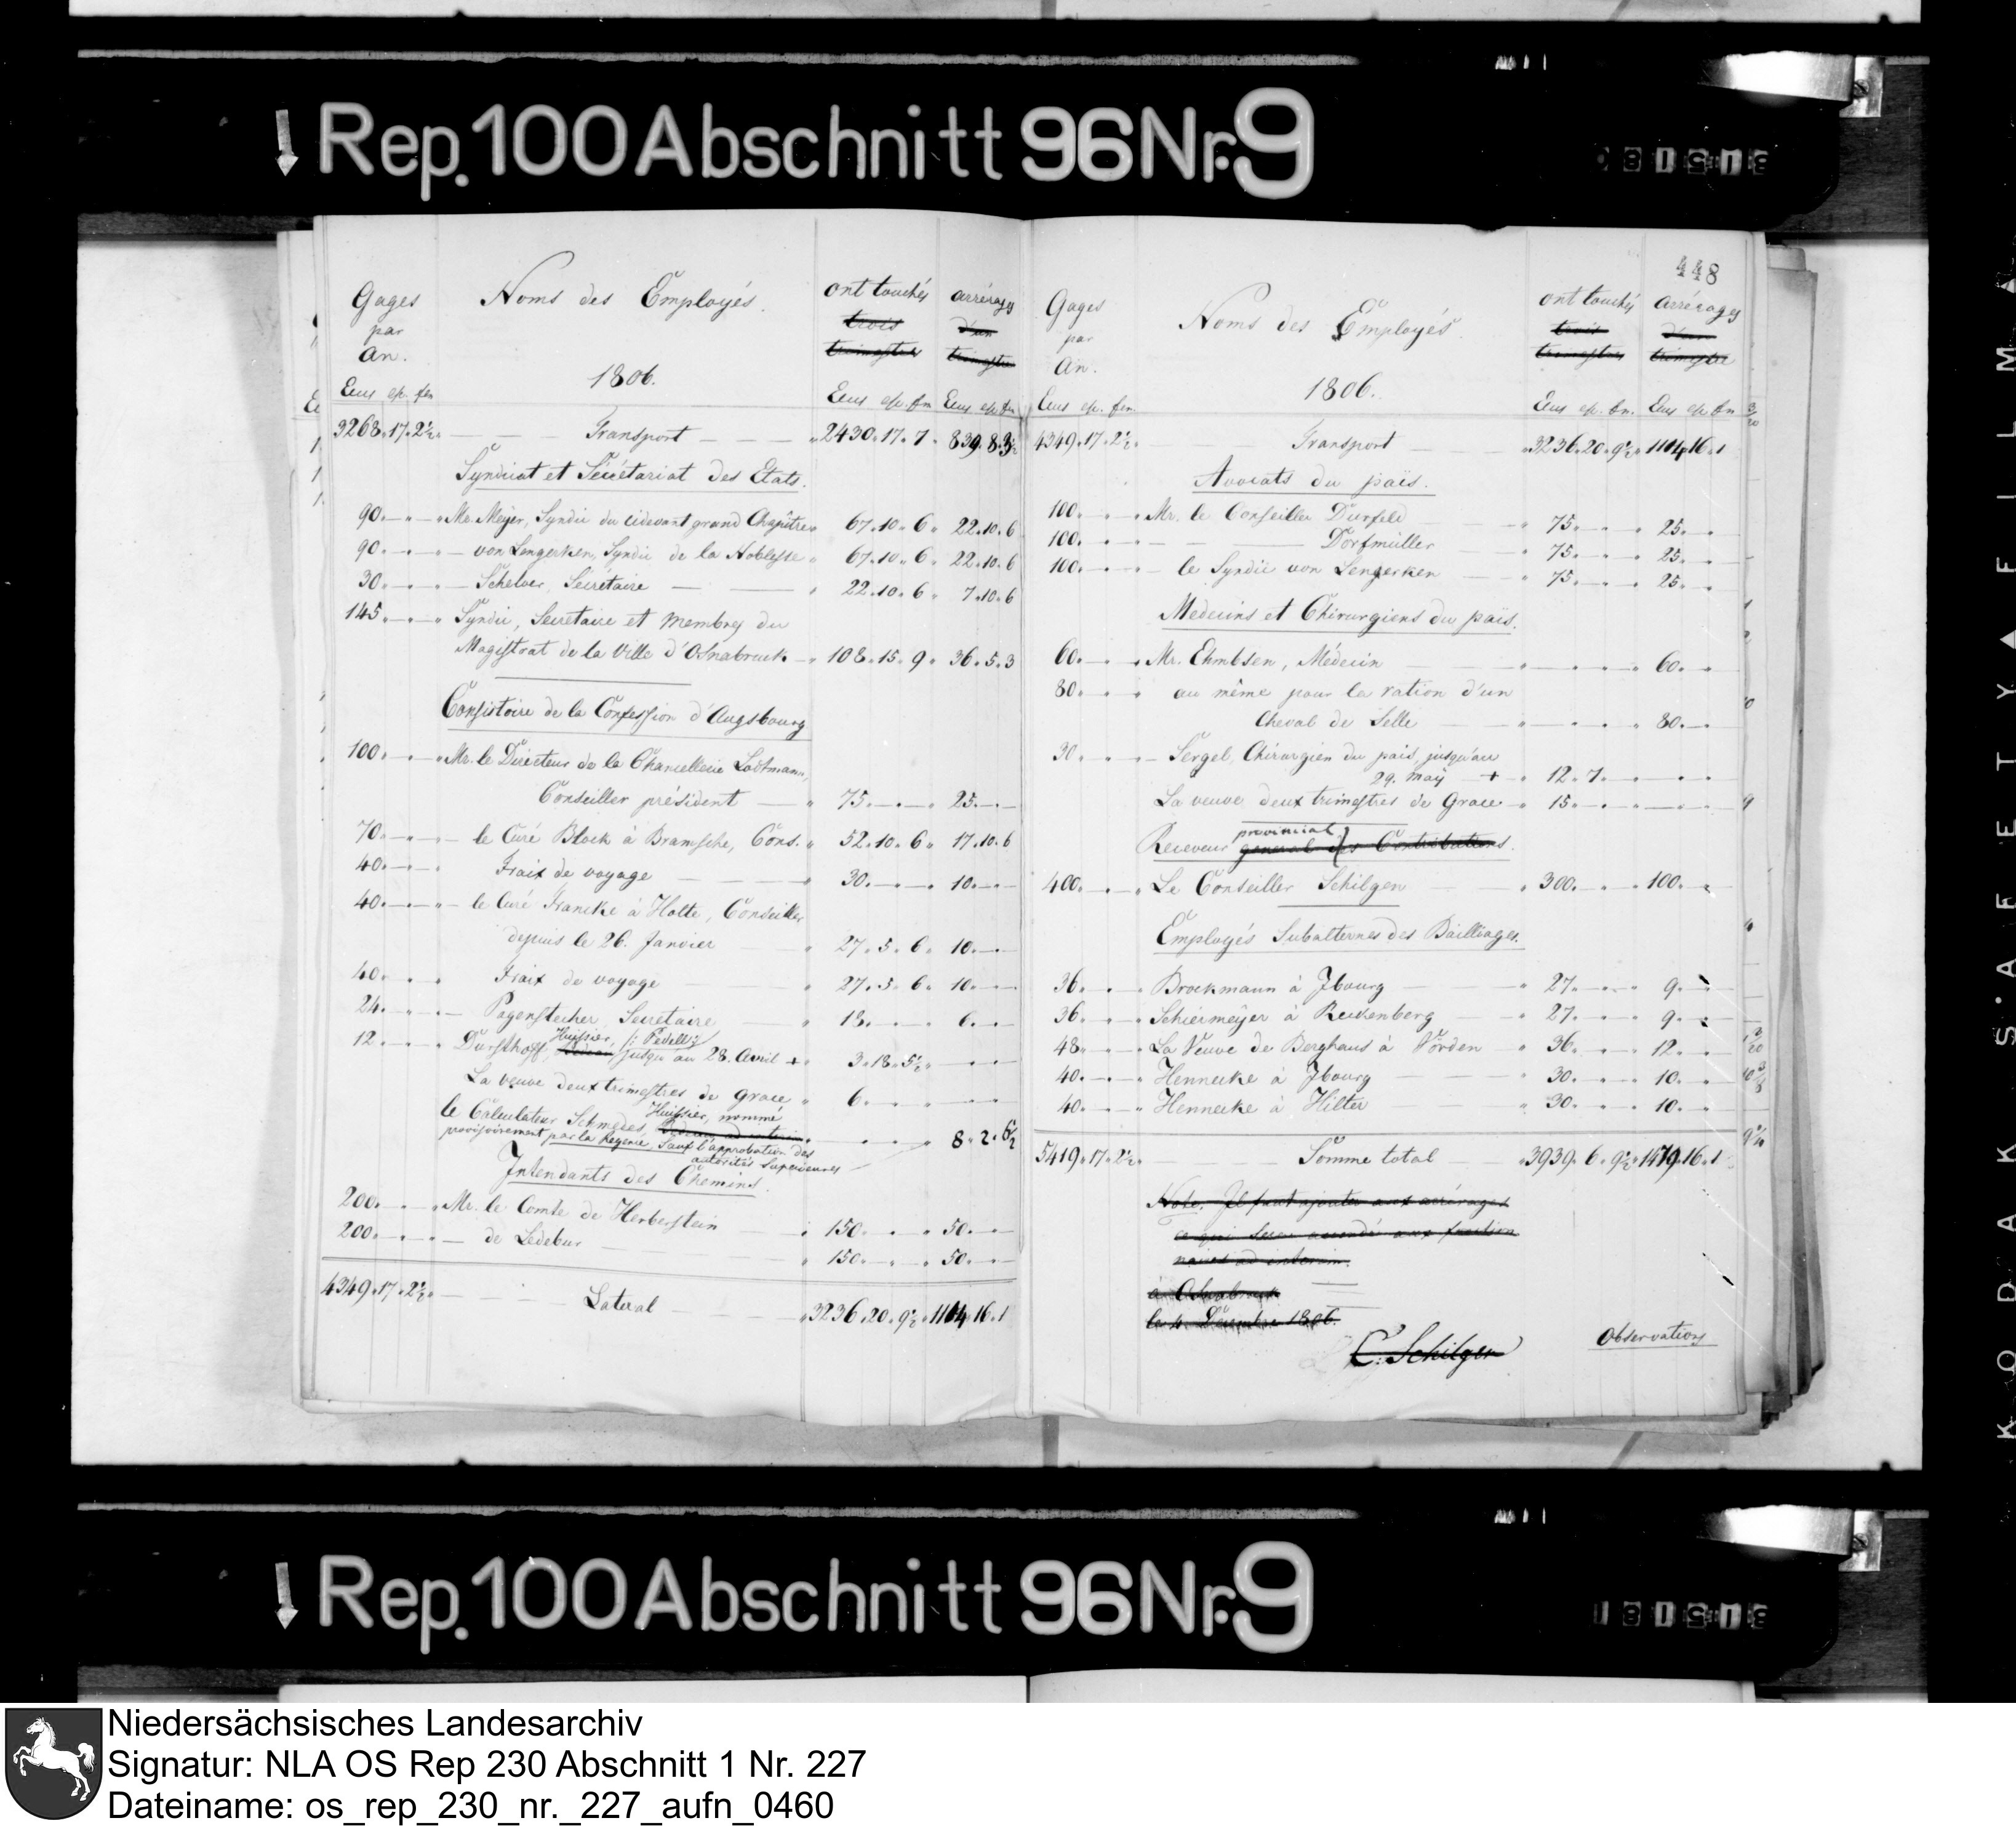 Rep. 100 Abschnitt 96 Nr. 9
Gages par An.
Noms des Employés.
ont touchés trois trimestres
arrérages d'un trimestre
1806.
Ecus esc. fen
Ecus esc. fen Ecus esc. fen
3268. 17. 2½. Transport 2430. 17. 7. 839. 8. 3½
Syndicat et Sécrétariat des Etats.
90. Mr. Meyer, Syndic du cidevant grand Chapitre 67. 10. 6. 22. 10. 6
90. — von Lengerken, Syndic de la Noblesse 67. 10. 6. 22. 10. 6
30. — Schelver, Secrétaire 22. 10. 6. 7. 10. 6
145. Syndic, Secretaire et membres du
Magistrat de la Ville d'Osnabruck 108. 15. 9. 36. 5. 3
Consistoire de la Confession d'Augsbourg
100. Mr. le Directeur de la Chancellerie Lodtmann,
Conseiller président 75. 25.
70. — le Curé Block à Bramsche, Cons. 52. 10. 6. 17. 10. 6
40. Fraix de voyage 30. 10.
40. — le Curé Francke à Holte, Conseiller
depuis le 26. Janvier 27. 5. 6. 10.
40. Fraix de voyage 27. 5. 6. 10.
24. — Pagenstecher, Secretaire 18. 6.
Huissier, /: Pedell :/
12. Dürsthoff, jusqu'au 28. Avril + 3. 18. 5½.
La veuve deux trimestres de grace 6.
Huissier, nommé
le Calculateur Schmedes, 8. 2. 6½
provisoirement par la Regence, Sauf l'approbation des
autorités Superieures
Intendants des Chemins.
200. Mr. le Comte de Herberstein 150. 50.
200. — de Ledebur 150. 50.
4349. 17. 2½. Lateral 3236. 20. 9½. 1104. 16. 1
448
Gages par An.
Noms des Employés.
ont touchés trois trimestres
arrérages d'un trimestre
1806.
Ecus esc. fen.
Ecus esc. fn. Ecus esc fn
4349. 17. 2½. Transport 3236. 20. 9½. 1104. 16. 1
Avocats du païs.
100. Mr. le Conseiller Dürfeld 75. 25.
100. — — Dorfmüller 75. 25.
100. — le Syndic von Lengerken 75. 25.
Medecins et Chirurgiens du païs.
60. Mr. Ehmbsen, Médecin 60.
80. au même pour la ration d'un
Cheval de Selle 80.
30. — Sergel, Chirurgien du païs, jusqu'au
29. May + 12. 7.
La veuve deux trimestres de Grace 15.
provincial
Receveur general des Contributions.
400. Le Conseiller Schilgen 300. 100.
Employés Subalternes des Bailliages.
36. Brockmann à Jbourg 27. 9.
36. Schiermeyer à Reckenberg 27. 9.
48. La Veuve de Berghaus à Vörden 36. 12.
40. Hennecke à Jbourg 30. 10.
40. Hennecke à Hilter 30. 10.
5419. 17. 2½. Somme total 3939. 6. 9½. 1479. 16. 1
Note. Il faut ajouter aux arrérages
ce qui sera accordé aux fonction
naires ad interim.
à Osnabruck
le 4. Décembre 1806.
C. Schilgen
Observations
Rep. 100 Abschnitt 96 Nr. 9
KODAK SAFETY FILM
Niedersächsisches Landesarchiv
Signatur: NLA OS Rep 230 Abschnitt 1 Nr. 227
Dateiname: os_rep_230_nr._227_aufn_0460